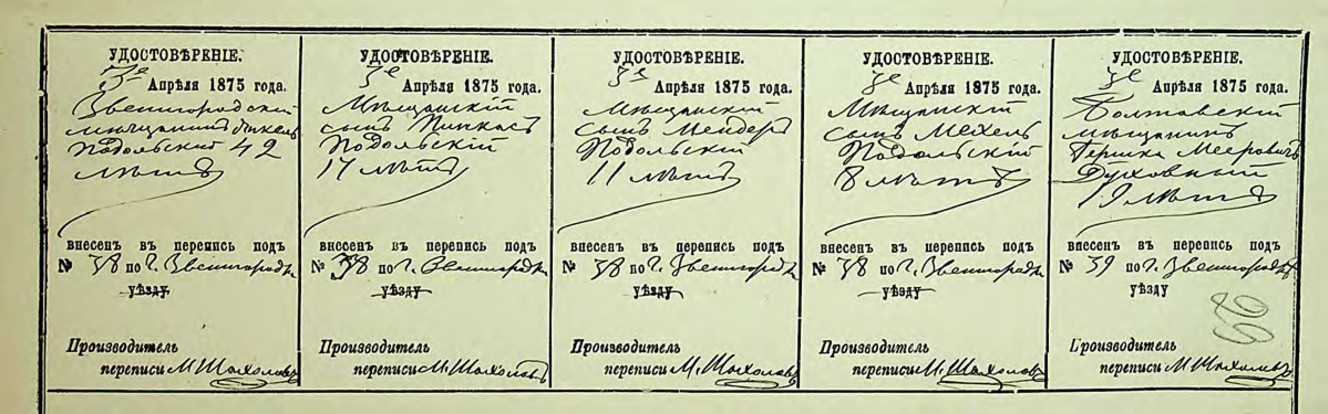 УДОСТОВѢРЕНІЕ.
3е Апрѣля 1875 года.
Звенигородскій
мѣщанинъ
Подольскій 42
лѣтъ
внесенъ въ перепись подъ
№ 38 по г. Звенигородкѣ
уѣзду.
Производитель
переписи М. Шахоловъ
УДОСТОВѢРЕНІЕ.
3е Апрѣля 1875 года.
Мѣщанскій
сынъ Пинкасъ
Подольскій
17 лѣтъ
внесенъ въ перепись подъ
№ 38 по г. Звенигородкѣ
уѣзду
Производитель
переписи М. Шахоловъ
УДОСТОВѢРЕНІЕ.
3е Апрѣля 1875 года.
Мѣщанскій
сынъ Мендель
Подольскій
11 лѣтъ
внесенъ въ перепись подъ
№ 38 по г. Звенигородкѣ
уѣзду
Производитель
переписи М. Шахоловъ
УДОСТОВѢРЕНІЕ.
3е Апрѣля 1875 года.
Мѣщанскій
сынъ Мехель
Подольскій
8 лѣтъ
внесенъ въ перепись подъ
№ 38 по г. Звенигородкѣ
уѣзду
Производитель
переписи М. Шахоловъ
УДОСТОВѢРЕНІЕ.
3е Апрѣля 1875 года.
Полтавскій
мѣщанинъ
Гершка Мееровичъ
Духовный
19 лѣтъ
внесенъ въ перепись подъ
№ 39 по г. Звенигородкѣ
уѣзду
Производитель
переписи М. Шахоловъ